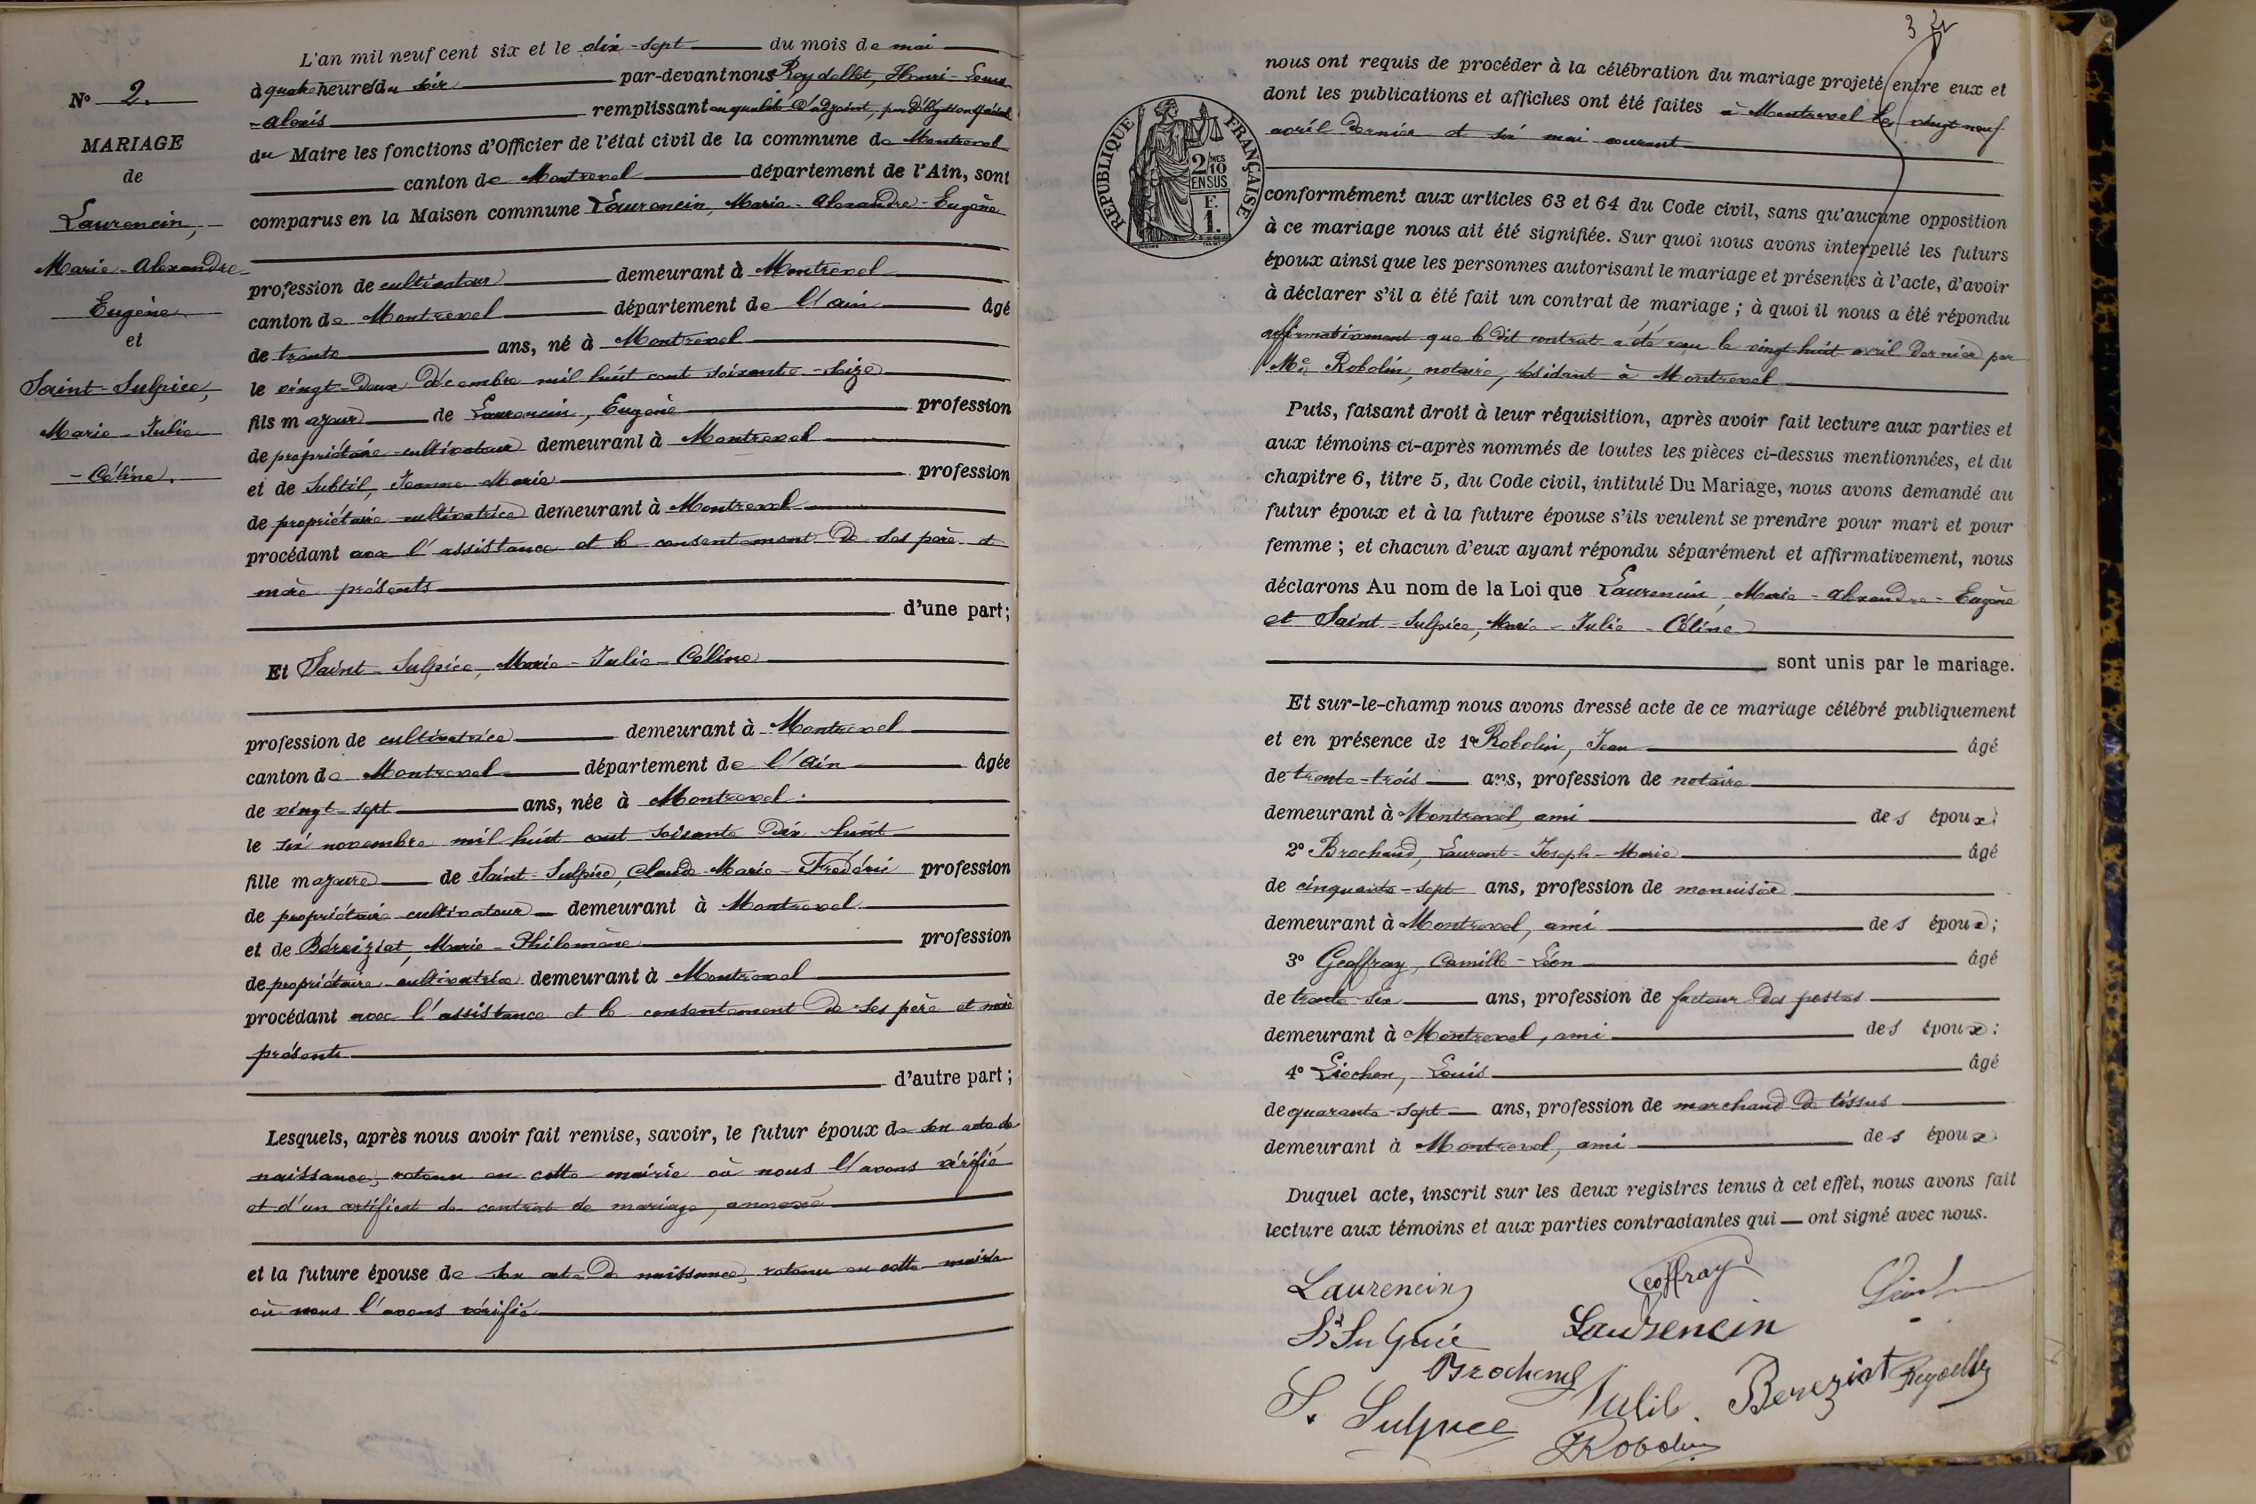 L'an mil neuf cent six et le dix-sept du mois de mai
à quatre heures du soir par-devant nous Reydellet, Henri-Louis
-Alexis remplissant en qualité d'adjoint, par délégation spéciale
du Maire les fonctions d'Officier de l'état civil de la commune de Montrevel
canton de Montrevel département de l'Ain, sont
comparus en la Maison commune Laurencin, Marie-Alexandre-Eugène
profession de cultivateur demeurant à Montrevel
canton de Montrevel département de l'Ain âgé
de trente ans, né à Montrevel
le vingt-deux décembre mil huit cent soixante-seize
fils majeur de Laurencin, Eugène profession
de propriétaire-cultivateur demeurant à Montrevel
et de Subtil, Jeanne-Marie profession
de propriétaire-cultivatrice demeurant à Montrevel
procédant avec l'assistance et le consentement de ses père et
mère présents
d'une part;
Et Saint-Sulpice, Marie-Julie-Céline
profession de cultivatrice demeurant à Montrevel
canton de Montrevel département de l'Ain âgée
de vingt-sept ans, née à Montrevel
le six novembre mil huit cent soixante dix huit
fille majeure de Saint-Sulpice, Claude-Marie-Frédéric profession
de propriétaire cultivateur demeurant à Montrevel
et de Béreiziat, Marie-Philomène profession
de propriétaire cultivatrice demeurant à Montrevel
procédant avec l'assistance et le consentement de ses père et mère
présents
d'autre part;
Lesquels, après nous avoir fait remise, savoir, le futur époux de son acte de
naissance, retenu en cette mairie où nous l'avons vérifié
et d'un certificat de contrat de mariage, annexé
et la future épouse de son acte de naissance, retenu en cette mairie
où nous l'avons vérifié
N° 2.
MARIAGE
de
Laurencin,
Marie-Alexandre-
Eugène
et
Saint-Sulpice,
Marie-Julie
-Céline.
3
nous ont requis de procéder à la célébration du mariage projeté entre eux et
dont les publications et affiches ont été faites à Montrevel les vingt neuf
avril dernier et six mai courant
REPUBLIQUE FRANÇAISE
2/10 MES
EN SUS
F.
1.
conformément aux articles 63 et 64 du Code civil, sans qu'aucune opposition
à ce mariage nous ait été signifiée. Sur quoi nous avons interpellé les futurs
époux ainsi que les personnes autorisant le mariage et présentes à l'acte, d'avoir
à déclarer s'il a été fait un contrat de mariage; à quoi il nous a été répondu
affirmativement que le dit contrat a été reçu le vingt huit avril dernier par
Me Robolin, notaire, résidant à Montrevel
Puis, faisant droit à leur réquisition, après avoir fait lecture aux parties et
aux témoins ci-après nommés de toutes les pièces ci-dessus mentionnées, et du
chapitre 6, titre 5, du Code civil, intitulé Du Mariage, nous avons demandé au
futur époux et à la future épouse s'ils veulent se prendre pour mari et pour
femme; et chacun d'eux ayant répondu séparément et affirmativement, nous
déclarons Au nom de la Loi que Laurencin, Marie-Alexandre-Eugène
et Saint-Sulpice, Marie-Julie-Céline
sont unis par le mariage.
Et sur-le-champ nous avons dressé acte de ce mariage célébré publiquement
et en présence de 1° Robolin, Jean âgé
de trente-trois ans, profession de notaire
demeurant à Montrevel, ami des époux;
2° Brochand, Laurent-Joseph-Marie âgé
de cinquante-sept ans, profession de menuisier
demeurant à Montrevel, ami des époux;
3° Geoffray, Camille-Léon âgé
de trente-six ans, profession de facteur des postes
demeurant à Montrevel, ami des époux:
4° Liochon, Louis âgé
de quarante-sept ans, profession de marchand de tissus
demeurant à Montrevel, ami des époux
Duquel acte, inscrit sur les deux registres tenus à cet effet, nous avons fait
lecture aux témoins et aux parties contractantes qui ont signé avec nous.
Laurencin Geoffray
St Sulpice Laurencin
Brochand
S. Sulpice Bereziat Reydellet
Robolin